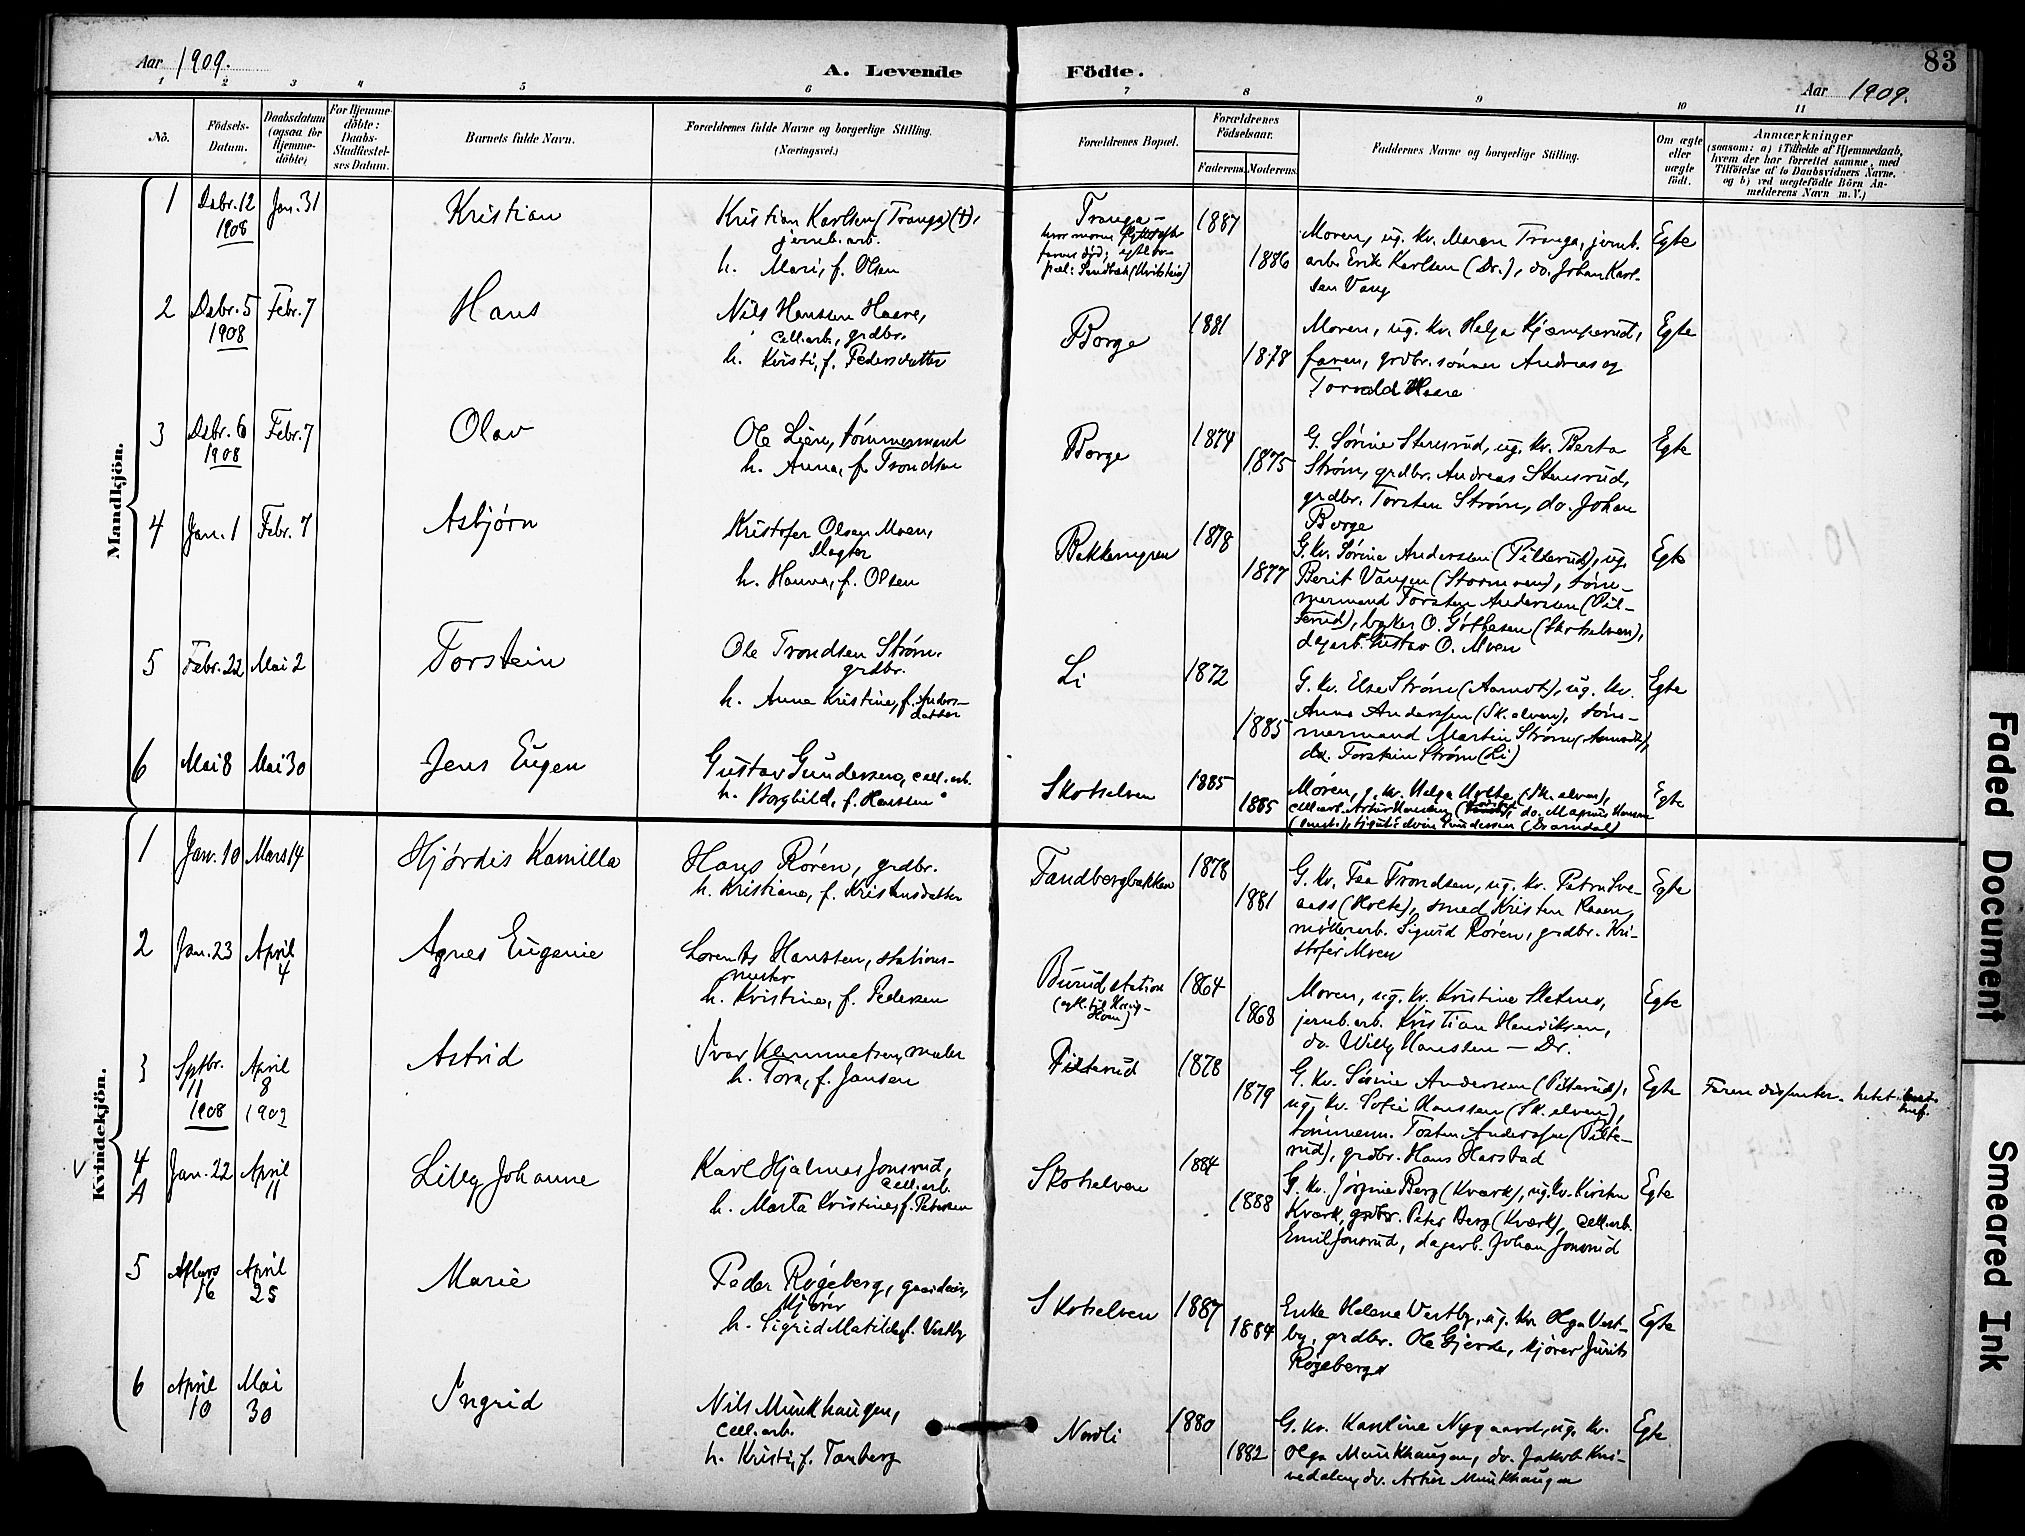 Aar 1909.
A. Levende Födte.
83
Aar 1909.
1 2 3 4 5 6 7 8 9 10 11
No.
Födsels-Datum.
Daabsdatum (ogsaa for Hjemme-döbte)
For Hjemme-döbte: Daabs-Stadfæstel-ses Datum.
Barnets fulde Navn.
Forældrenes fulde Navne og borgerlige Stilling. (Næringsvei.)
Forældrenes Bopæl.
Forældrenes Födselsaar.
Faderens. Moderens.
Faddernes Navne og borgerlige Stilling.
Om ægte eller uægte født.
Anmærkninger
(saasom: a) i Tilfælde af Hjemmedaab,
hvem der har forrettet samme, med
Tilföielse af to Daabsvidners Navne,
og b) ved uægtefödte Börn An-
melderens Navn m. V.)
Mandkjön.
1 Debr. 12 1908 Jan. 31 Kristian
Kristian Karlsen (Tranga) (†),
jernb. arb.
h. Mari, f. Olsen
Tranga -
1887
1886
Moren, ug. kv. Maren Tranga, jernb.
arb. Erik Karlsen (Dr.), do. Johan Karl-
sen Vang
Egte
2 Debr. 5 1908 Febr. 7 Hans
Nils Hansen Haare,
cell.arb., grdbr.
h. Kristi, f. Pedersdatter
Borge
1881
1878
Moren, ug. kv. Helga Kjemperud,
faren, grdbr. sønner Andreas og
Torvald Haare
Egte
3 Debr. 6 1908 Febr. 7 Olav
Ole Lien, tømmermand
h. Anna, f. Trondsen
Borge
1874
1875
G. Sørine Stensrud, ug. kv. Berta
Strøm, grdbr. Andreas Stensrud,
grdbr. Torsten Strøm, do. Johan
Borge
Egte
4 Jan. 1 Febr. 7 Asbjørn
Kristofer Olsen Moen,
slagter
h. Hanna, f. Olsen
Bakkemyren
1878
1877
G. kv. Sørine Anderssen (Pilterud), ug.
Berit Vangen (Stormoen), tøm-
mermand Torsten Anderssen (Pil-
terud), O. (Skotselven),
Gustav O. Moen
Egte
5 Febr. 22 Mai 2 Torstein
Ole Trondsen Strøm,
grdbr.
h. Anna Kristine, f. Anders-
datter
Li
1872
1885
G. kv. Else Strøm (Aamodt), ug. kv.
Anna Anderssen (Sk.elven), tøm-
mermand Martin Strøm (Aamodt),
do. Torstein Strøm (Li)
Egte
6 Mai 8 Mai 30 Jens Eugen
Gustav Gundersen, cell. arb.
h. Borghild, f. Hanssen
Skotselven
1885
1885
Moren, g. kv. Helga Holte (Sk. elven),
cell.arb. Artur Hansen do. Magnus Hansen
Egte
Kvindekjön.
1 Jan. 10 Mars 14 Hjørdis Kamilla
Hans Røren, grdbr.
h. Kristiane, f. Kristensdatter
Tandbergbakken
1878
1881
G. kv. Tea Trondsen, ug. kv. Petra Sve-
aass (Holte), smed Kristen Raaen,
møllerarb. Sigurd Røren, grdbr. Kri-
stofer Moen
Egte
2 Jan. 23 April 4 Agnes Eugenie
Lorents Hanssen, stations-
mester
h. Kristine, f. Pedersen
Burud station
1864
1868
Moren, ug. kv. Kristine Sletmo,
jernb. arb. Kristian Henriksen,
do. Willy Hanssen - Dr.
Egte
3 Septbr. 11 1908 April 8 1909 Astrid
Ivar Klemmetsen, maler
h. Tora, f. Jansen
Pilterud
1878
1879
G. kv. Sørine Anderssen (Pilterud),
ug. kv. Sofie Hanssen (Sk. elven),
tømmerm. Torsten Anderssen (Pilte-
rud), grdbr. Hans Harstad
Egte
Faren dissenter.
4 A Jan. 22 April 11 Lilly Johanne
Karl Hjalmar Jonsrud,
cell.arb.
h. Marta Kristine, f. Petersen
Skotselven
1884
1888
G. kv. Jørgine Berg (Kværk), ug. kv. Kirsten
Kværk, grdbr. Peter Berg (Kværk), cell.arb.
Emil Jonsrud, dagarb. Johan Jonsrud
Egte
5 Mars 16 April 25 Marie
Peder Røgeberg, gaardeier,
kjører
h. Sigrid Matilde, f. Vestby
Skotselven
1887
1884
Enke Helene Vestby, ug. kv. Olga Vest-
by, grdbr. Ole Gjerde, kjører
Røgeberg
Egte
6 April 10 Mai 30 Ingrid
Nils Munkhaugen,
cell.arb.
h. Kristi, f. Tanberg
Nordli
1880
1882
G. kv. Karoline Nygaard, ug. kv.
Olga Munkhaugen, do. Jakob Kni-
vedalen, do. Artur Munkhaugen
Egte
Faded Document
Smeared Ink